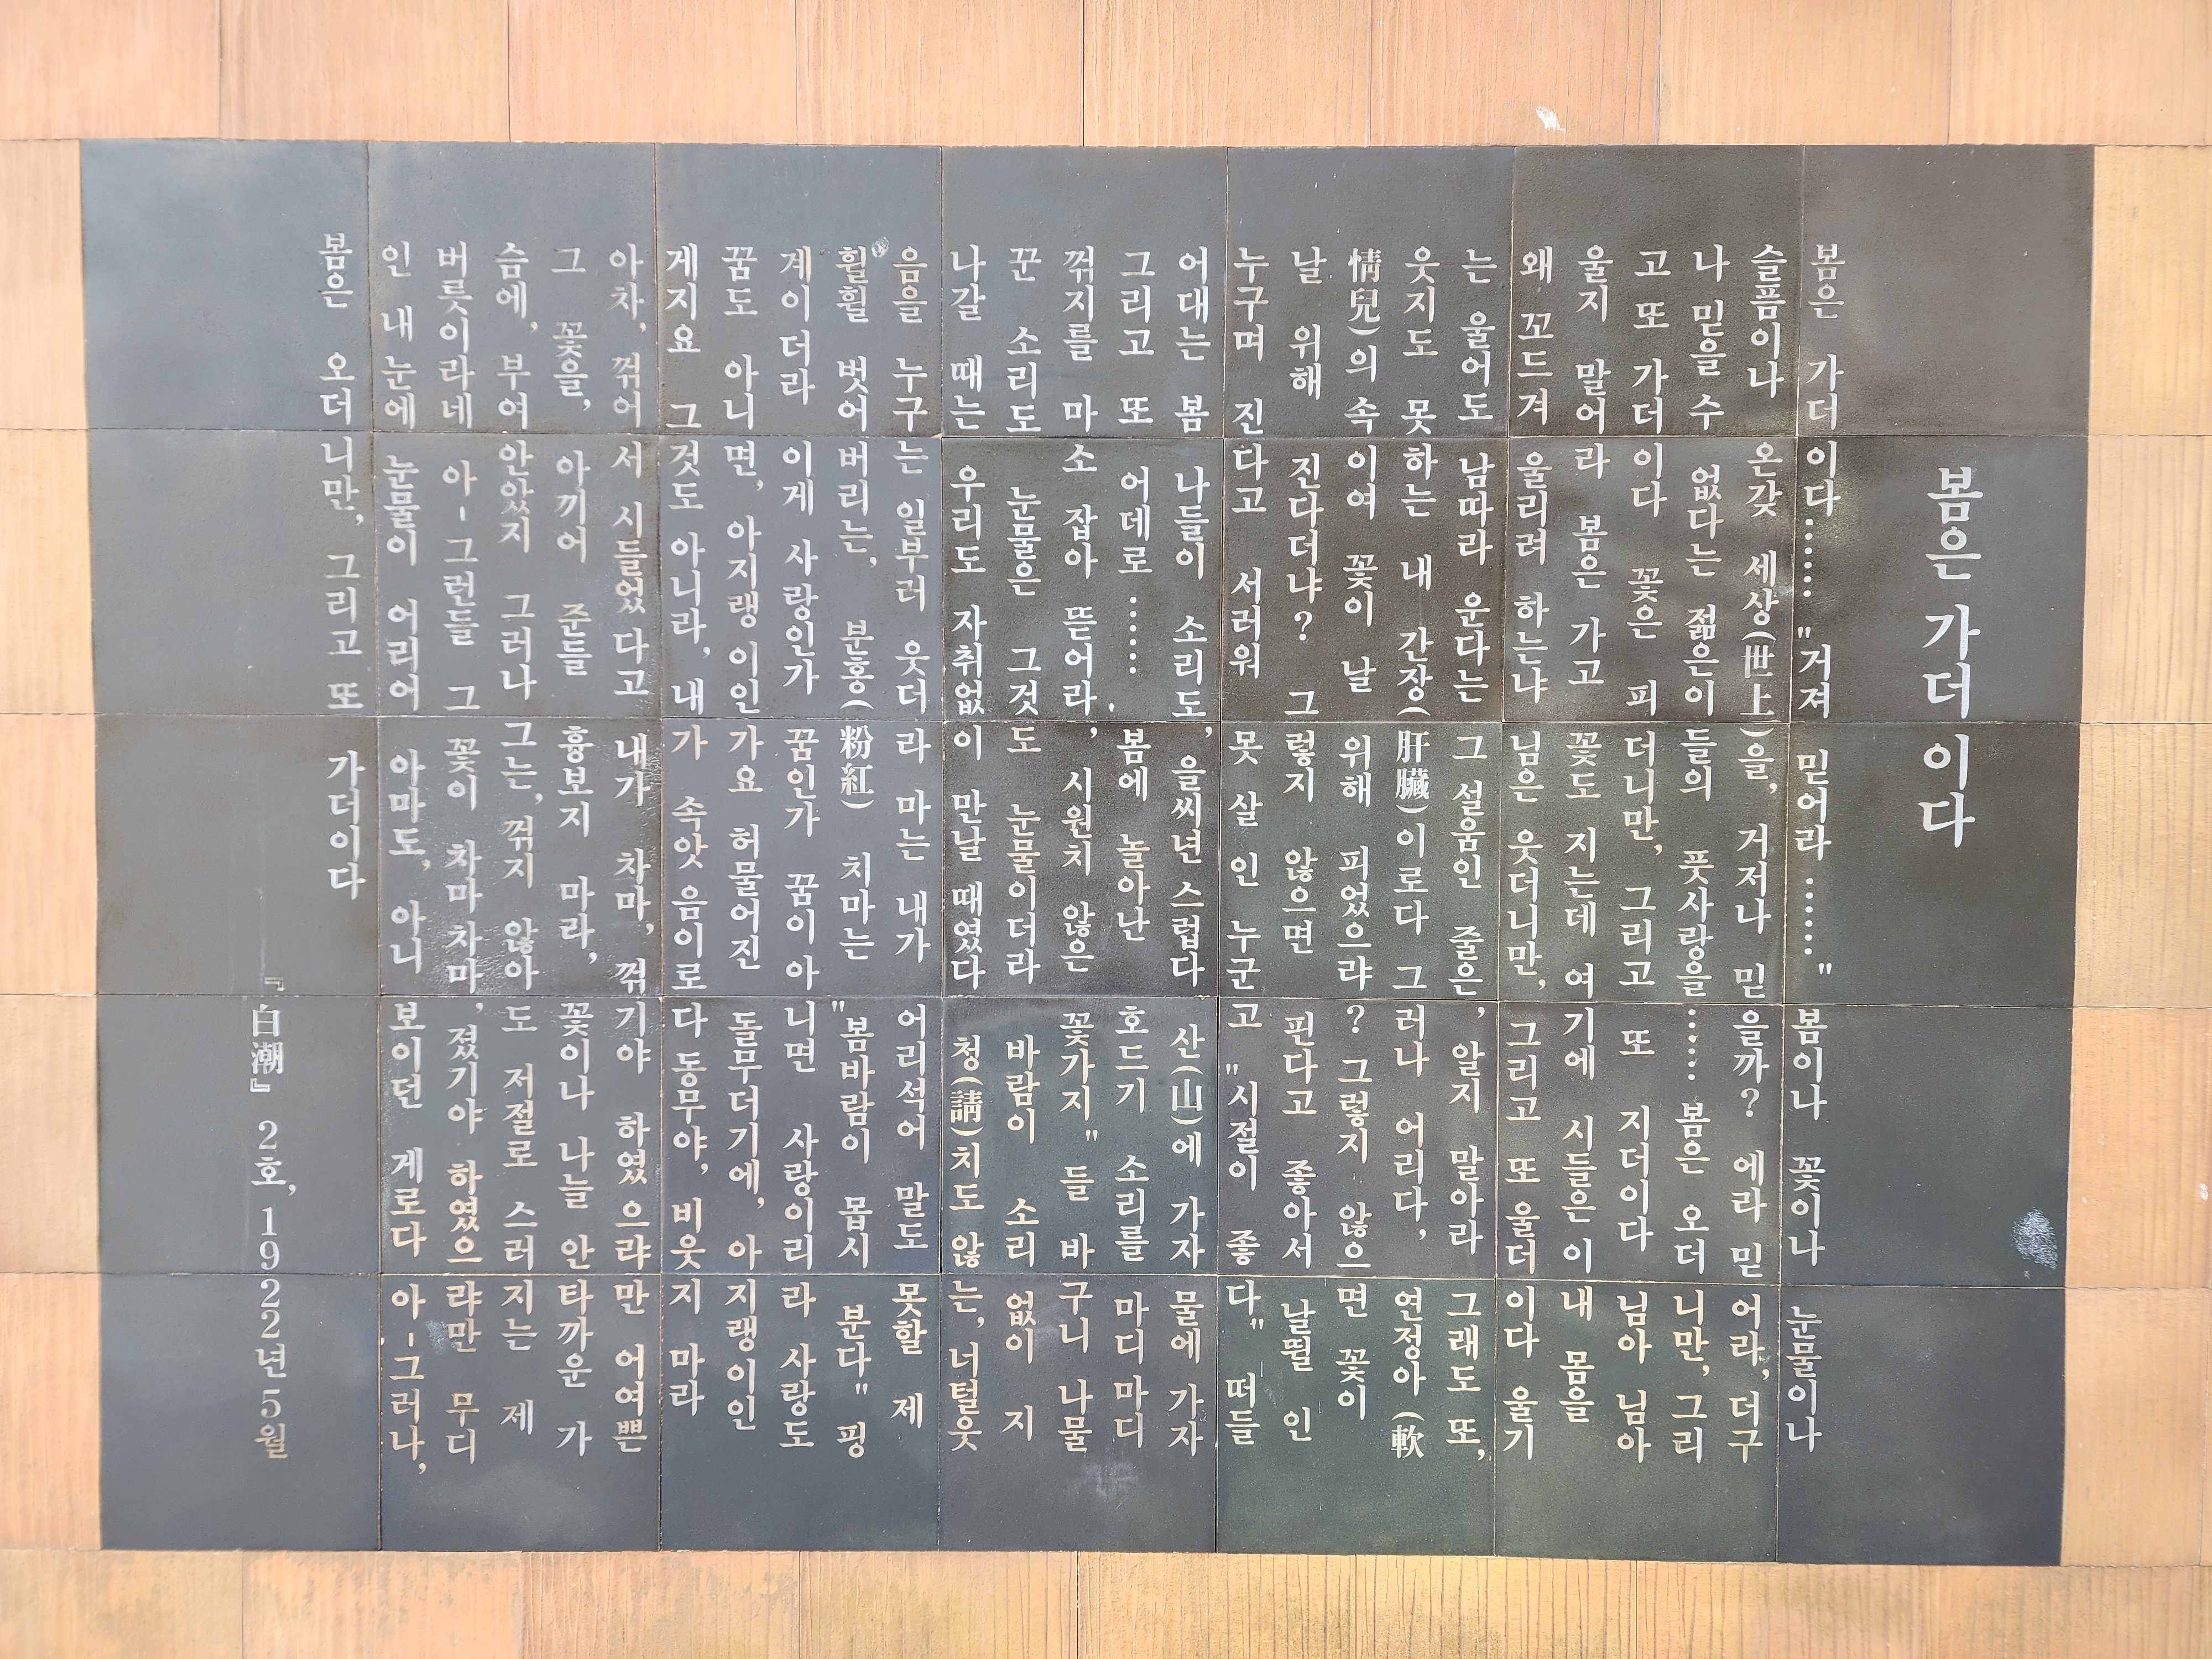 봄은 가더이다
봄은 가더이다…… "거져 믿어라……" 봄이나 꽃이나 눈물이나
슬픔이나 온갖 세상(世上)을, 거저나 믿을까? 에라 믿어라, 더구
나 믿을 수 없다는 젊은이들의 풋사랑을…… 봄은 오더니만, 그리
고 또 가더이다 꽃은 피더니만, 그리고 또 지더이다 님아 님아
울지 말어라 봄은 가고 꽃도 지는데 여기에 시들은 이 내 몸을
왜 꼬드겨 울리려 하는냐 님은 웃더니만, 그리고 또 울더이다 울기
는 울어도 남따라 운다는 그 설움인 줄은, 알지 말아라 그래도 또,
웃지도 못하는 내 간장(肝臟)이로다 그러나 어리다, 연정아(軟
情兒)의 속이여 꽃이 날 위해 피었으랴? 그렇지 않으면 꽃이
날 위해 진다더냐? 그렇지 않으면 핀다고 좋아서 날뛸 인
누구며 진다고 서러워 못 살 인 누군고 "시절이 좋다" 떠들
어대는 봄 나들이 소리도, 을씨년스럽다 산(山)에 가자 물에 가자
그리고 또 어데로…… 봄에 놀아난 호드기 소리를 마디마디
꺾지를 마소 잡아 뜯어라, 시원치 않은 꽃가지" 들 바구니 나물
꾼 소리도 눈물은 그것도 눈물이더라 바람이 소리 없이 지
나갈 때는 우리도 자취없이 만날 때였다 청(請)치도 않는, 너털웃
음을 누구는 일부러 웃더라 마는 내가 어리석어 말도 못할 제
휠휠 벗어버리는, 분홍(粉紅) 치마는 "봄바람이 몹시 분다" 핑
계이더라 이게 사랑인가 꿈인가 꿈이 아니면 사랑이리라 사랑도
꿈도 아니면, 아지랭이인가요 허물어진 돌무더기에, 아지랭이인
게지요 그것도 아니라, 내가 속았음이로다 동무야, 비웃지 마라
아차, 꺾어서 시들었다고 내가 차마, 꺾기야 하였으랴만 어여쁜
그 꽃을, 아끼어 준들 흉보지 마라, 꽃이나 나늘 안타까운 가
슴에, 부여안았지 그러나 그는, 꺾지 않아도 저절로 스러지는 제
버릇이라네 아-그런들 그 꽃이 차마차마, 졌기야 하였으랴만 무디
인 내 눈에 눈물이 어리어 아마도, 아니 보이던 게로다 아-그러나,
봄은 오더니만, 그리고 또 가더이다
『白潮』 2호, 1922년 5월